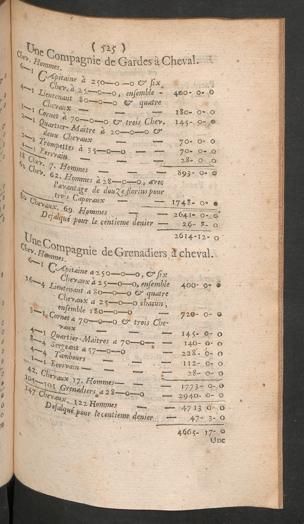 ( 525 )
Une Compagnie de Gardes à Cheval.
Chev. Hommes.
6—1 Capitaine à 250—0—0 & six
Chev. à 25—0—0, ensemble - 400- 0- 0
4—1 Lieutenant 80—0—0 & quatre
Chevaux — — — 180- 0- 0
3—1 Cornet à 70—0—0 & trois Chev. 145- 0- 0
2—1 Quartier-Maître à 20—0—0 &
deux Chevaux — — 70- 0- 0
3—2 Trompettes à 35—0—0 — 70- 0- 0
1 Ecrivain — — — 28- 0- 0
18 Chev. 7 Hommes — — 893- 0- 0
Chev. 62. Hommes à 28—0—0, avec
l'avantage de douze florins pour
trois Caporaux — — 1748- 0- 0
Chevaux. 69. Hommes — 2641- 0- 0
Desalqué pour le centieme denier — 26- 8- 0
2614-12- 0
Une Compagnie de Grenadiers à cheval.
Chev. Hommes.
6—1 Capitaine à 250—0—0, & six
Chevaux à 25—0—0, ensemble 400- 0- 0
16—4 Lieutenant à 80—0—0 & quatre
Chevaux à 25—0—0 chacun,
ensemble 180—0—0 — 720- 0- 0
3—1 Cornet à 70—0—0 & trois Che-
vaux — — — 145- 0- 0
Quartier-Maîtres à 70—0— 140- 0- 0
Sergeans à 57—0—0 — 228- 0- 0
Tambours — — 112- 0- 0
Ecrivain — — — 28- 0- 0
42. Chevaux 17. Hommes — — 1773- 0- 0
105—105 Grenadiers à 28—0—0 — 2940- 0- 0
147 Chevaux 122 Hommes — 4713 0- 0
Desalqué pour le centieme denier — 47- 3- 0
4665- 17- 0
Une